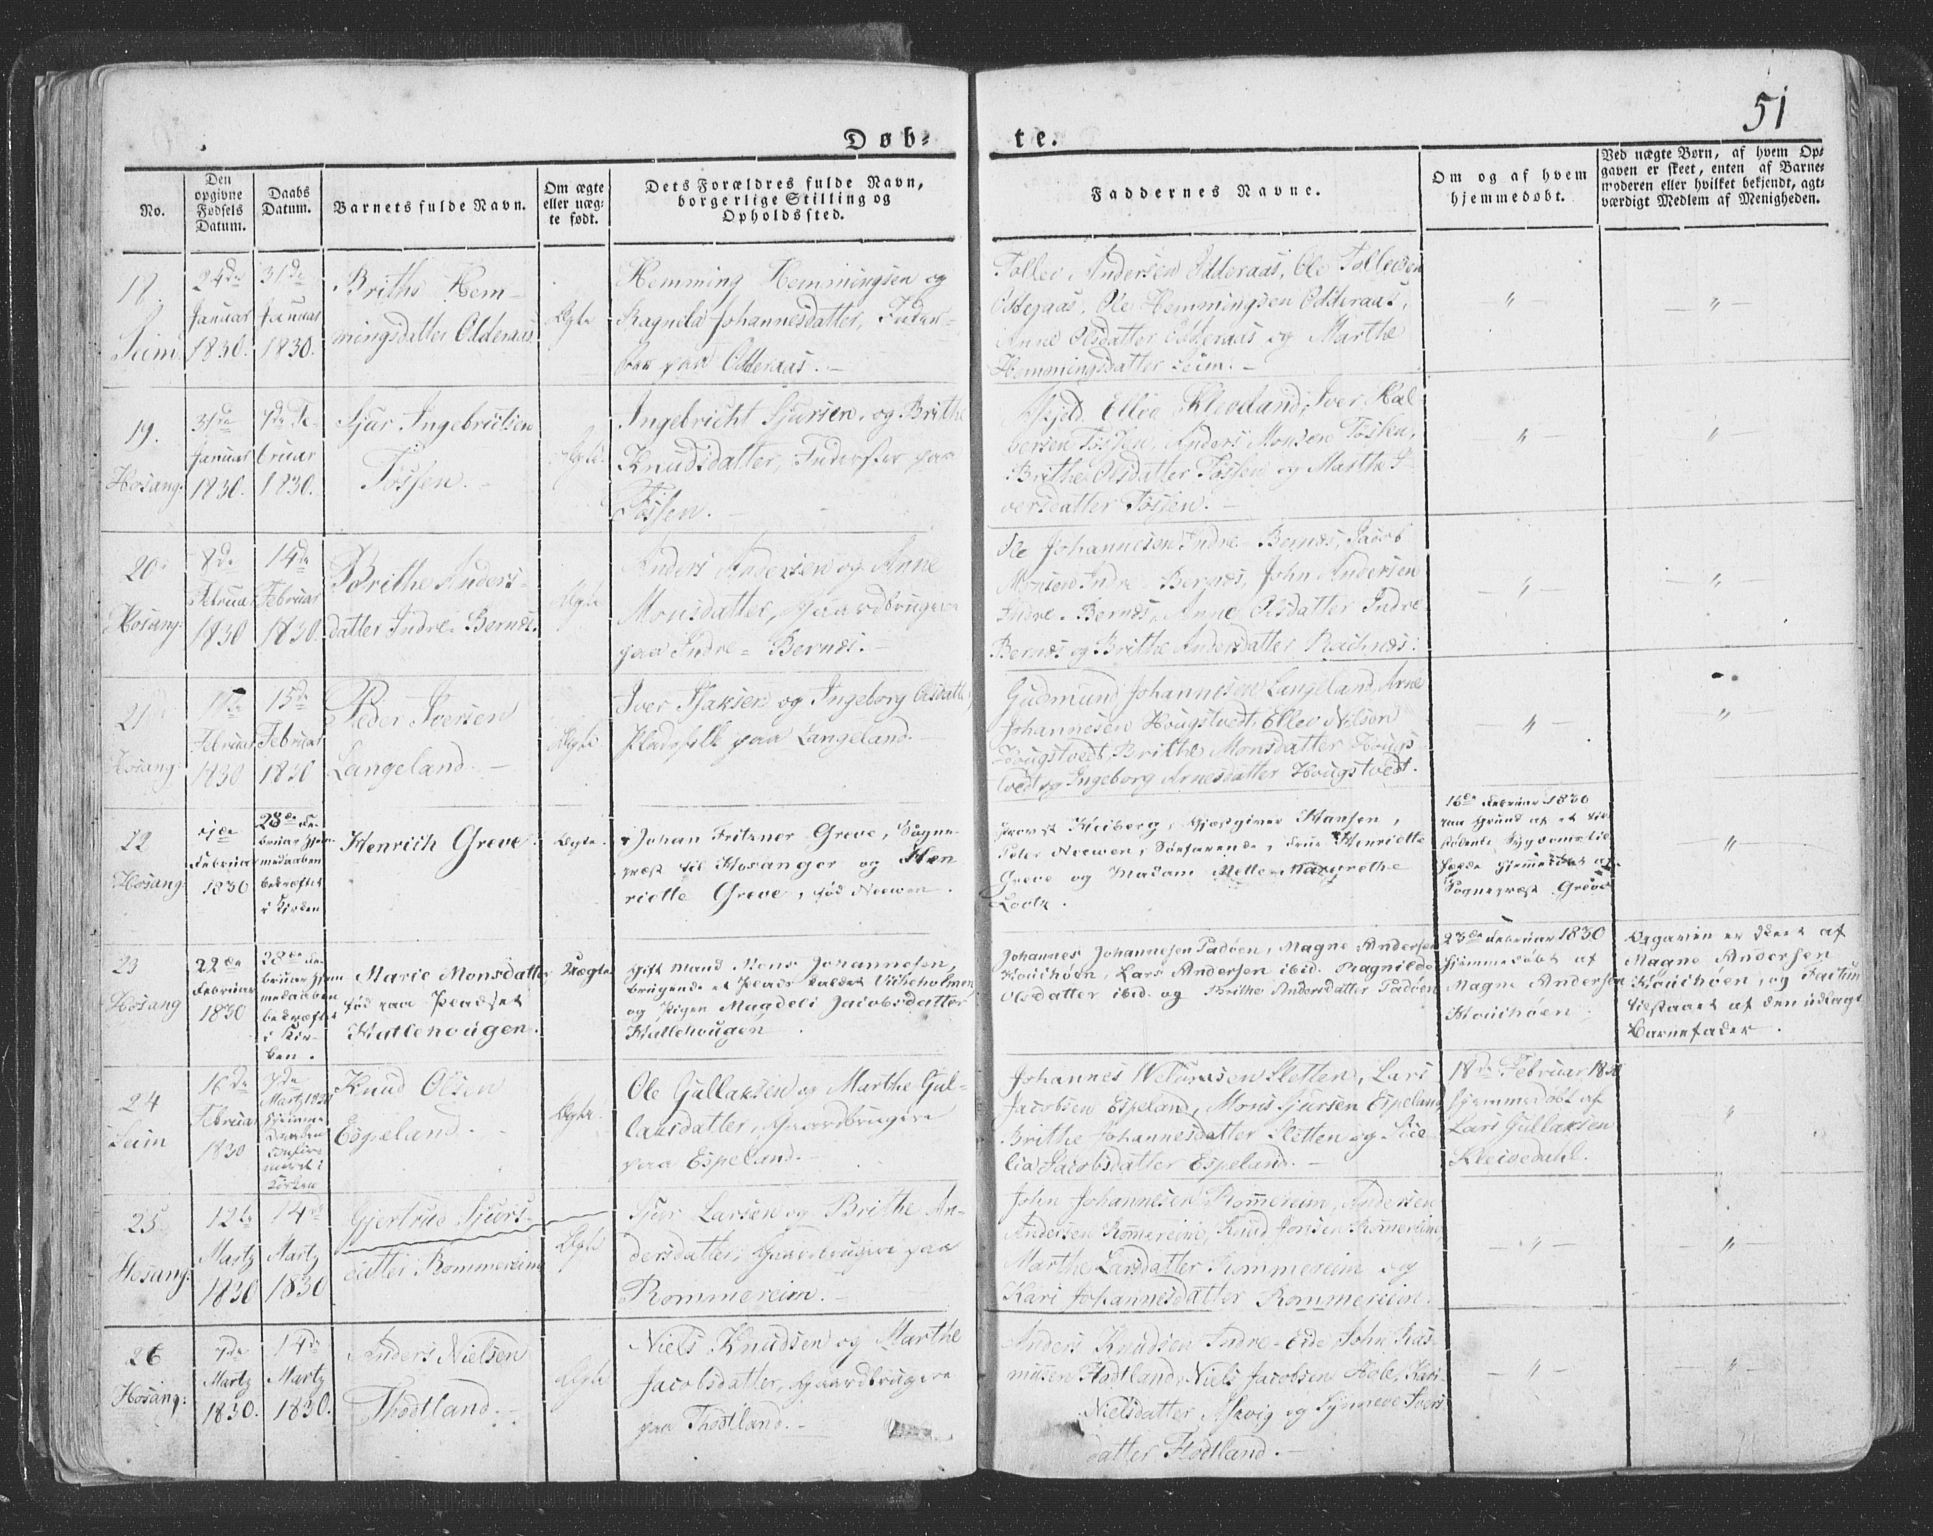 51
Døb-
te.
No.
Den
opgivne
Fødsels
Datum.
Daabs
Datum.
Barnets fulde Navn.
Om ægte
eller uæg-
te født.
Dets Forældres fulde Navn,
borgerlige Stilling og
Opholdssted.
Faddernes Navne.
Om og af hvem
hjemmedøbt.
Ved uægte Børn, af hvem Op-
gaven er skeet, enten af Barne-
moderen eller hvilket bekjendt, agt-
værdigt Medlem af Menigheden.
18.
Seim
24de
Januar
1830.
31de
Januar
1830.
Brithe Hem-
mingsdatter Odderaas
Ægte
Hemming Hemmingsen og
Ragnela Johannesdatter, Inder-
paa Odderaas.
Tollev Andersen Odderaas, Ole Tollevsen
Odderaas, Ole Hemmingsen Odderaas,
Anne Olsdatter Odderaas og Marthe
Hemmingsdatter Seim.
19.
Hosang:
31de
Januar
1830.
7de Fe-
bruar
1830.
Sjur Ingebrictsen
Tossen.
Ægte
Ingebricht Sjursen og Brithe
Knudsdatter, Inderster paa
Tossen.
Ellev Kleveland, Iver Hal-
versen Tossen, Anders Monsen Tossen,
Brithe Olsdatter Tossen og Marthe I-
versdatter Tossen.
20.
Hosang:
8de
Februar
1830
14de
Februar
1830.
Brithe Anders-
datter Indre-Bernæs.
Ægte
Anders Andersen og Anne
Monsdatter, Gaardbrugere
paa Indre-Bernæs.
Ole Johannesen Indre-Bernæs, Jacob
Monsen Indre Bernæs, John Andersen
Indre-Bernæs, Anne Olsdatter Indre
Bernæs og Brithe Andersdatter
21
Hosang:
Februar
1830
15de
Februar
1830
Peder Iversen
Langeland.
Ægte
Iver Isaksen og Ingeborg Olsdatter,
Pladsfolk paa Langeland.
Gudmund Johannesen Langeland, Arne
Johannesen Hougstvedt, Ellev Nilsen
Hougstvedt, Brithe Monsdatter Hougs-
tvedt og Ingeborg Arnesdatter Hougstvedt.
22
Hosang:
Februar
1830
28de Fe-
bruar hjem-
medaaben
bekræftet
i Kirken
Henrich Greve.
Ægte.
Johan Fritzner Greve, Sogne-
præst til Hosanger og Hen-
riette Greve, fød Neewen.
Provst Heiberg, Hansen,
Peter Neewen, Søefarende, Frue Henriette
Greve og Madam Mette Margrethe
16de Februar 1830
paa Grund af et til-
stødende Sygdomstil-
fælde hjemmedøbt af
Sognepræst Greve
23
Hosang
22de
Februar
1830
28de Fe-
bruar hjem-
medaaben
bekræftet
i Kir-
ken.
Marie Monsdatter
fød paa Pladset
Hatlehougen.
Uægte
Gift Mand Mons Johannesen,
brugende et Plads kaldet Vikeholmen
og Pigen Magdeli Jacobsdatter
Hatlehougen
Johannes Johannesen Tadøen, Magne Andersen
Kouihøen, Lars Andersen ibid. Ragnilde
Olsdatter ibid. og Brithe Andersdatter Tadøen
23de Februar 1830
hjemmedøbt af
Magne Andersen
Kouihøen
Opgaven er skeet af
Magne Andersen
Kouihøen, og Factum
tilstaaet af den udlagte
Barnefader.
24
Seim
16de
Februar
1830
7de
Martz 1830
hjemme
Daaben
confir-
meret i
Kirken
Knud Olsen
Espeland.
Ægte
Ole Gullaksen og Marthe Gul-
laksdatter, Gaardbrugere
paa Espeland.
Johannes Sletten, Lars
Jacobsen Espeland, Mons Sjursen Espeland
Brithe Johannesdatter Sletten og Sice-
lia Jacobsdatter Espeland.
18de Februar 1830
hjemmedøbt af
Lars Gullaksen
Kleivedahl.
25
Hosang:
12te
Martz
1830
14de
Martz
1830
Gjertrud Sjurs-
datter Rommereim
Ægte
Sjur Larsen og Brithe An-
dersdatter, Gaardbrugere paa
Rommereim.
John Johannesen Rommereim, Andersen
Andersen Rommereim, Knud Jonsen Rommereim
Marthe Larsdatter Rommereim og
Kari Johannesdatter Rommereim.
26
Hosang:
7de
Martz
1830.
14de
Martz
1830.
Anders Nielsen
Thodtland.
Ægte
Niels Knudsen og Marthe
Jacobsdatter, Gaardbrugere
paa Thodtland.
Anders Knudsen Indre-Eide, John Ras-
mussen Hodtland, Niels Jacobsen Hole, Kari
Nielsdatter Askvig og Synneve Ivers-
datter Hodtland.